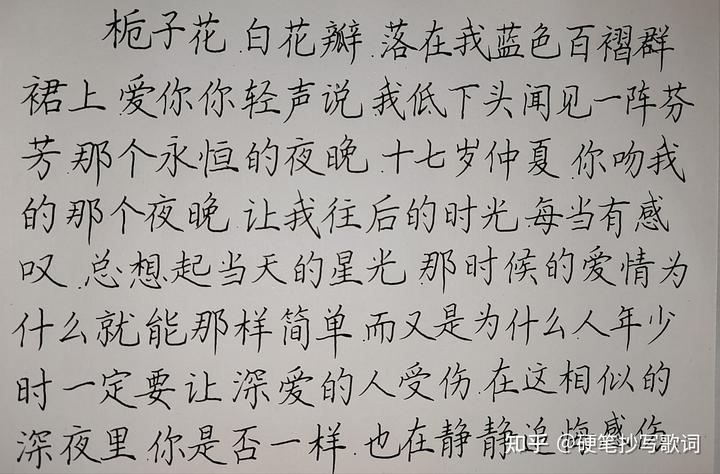 栀子花.白花瓣.落在我蓝色百褶群
裙上.爱你你轻声说.我低下头闻见一阵芬
芳.那个永恒的夜晚.十七岁仲夏.你吻我
的那个夜晚.让我往后的时光.每当有感
叹.总想起当天的星光.那时候的爱情为
什么就能那样简单.而又是为什么人年少
时一定要让深爱的人受伤.在这相似的
深夜里.你是否一样.也在静静追悔感伤
知乎 @硬笔抄写歌词